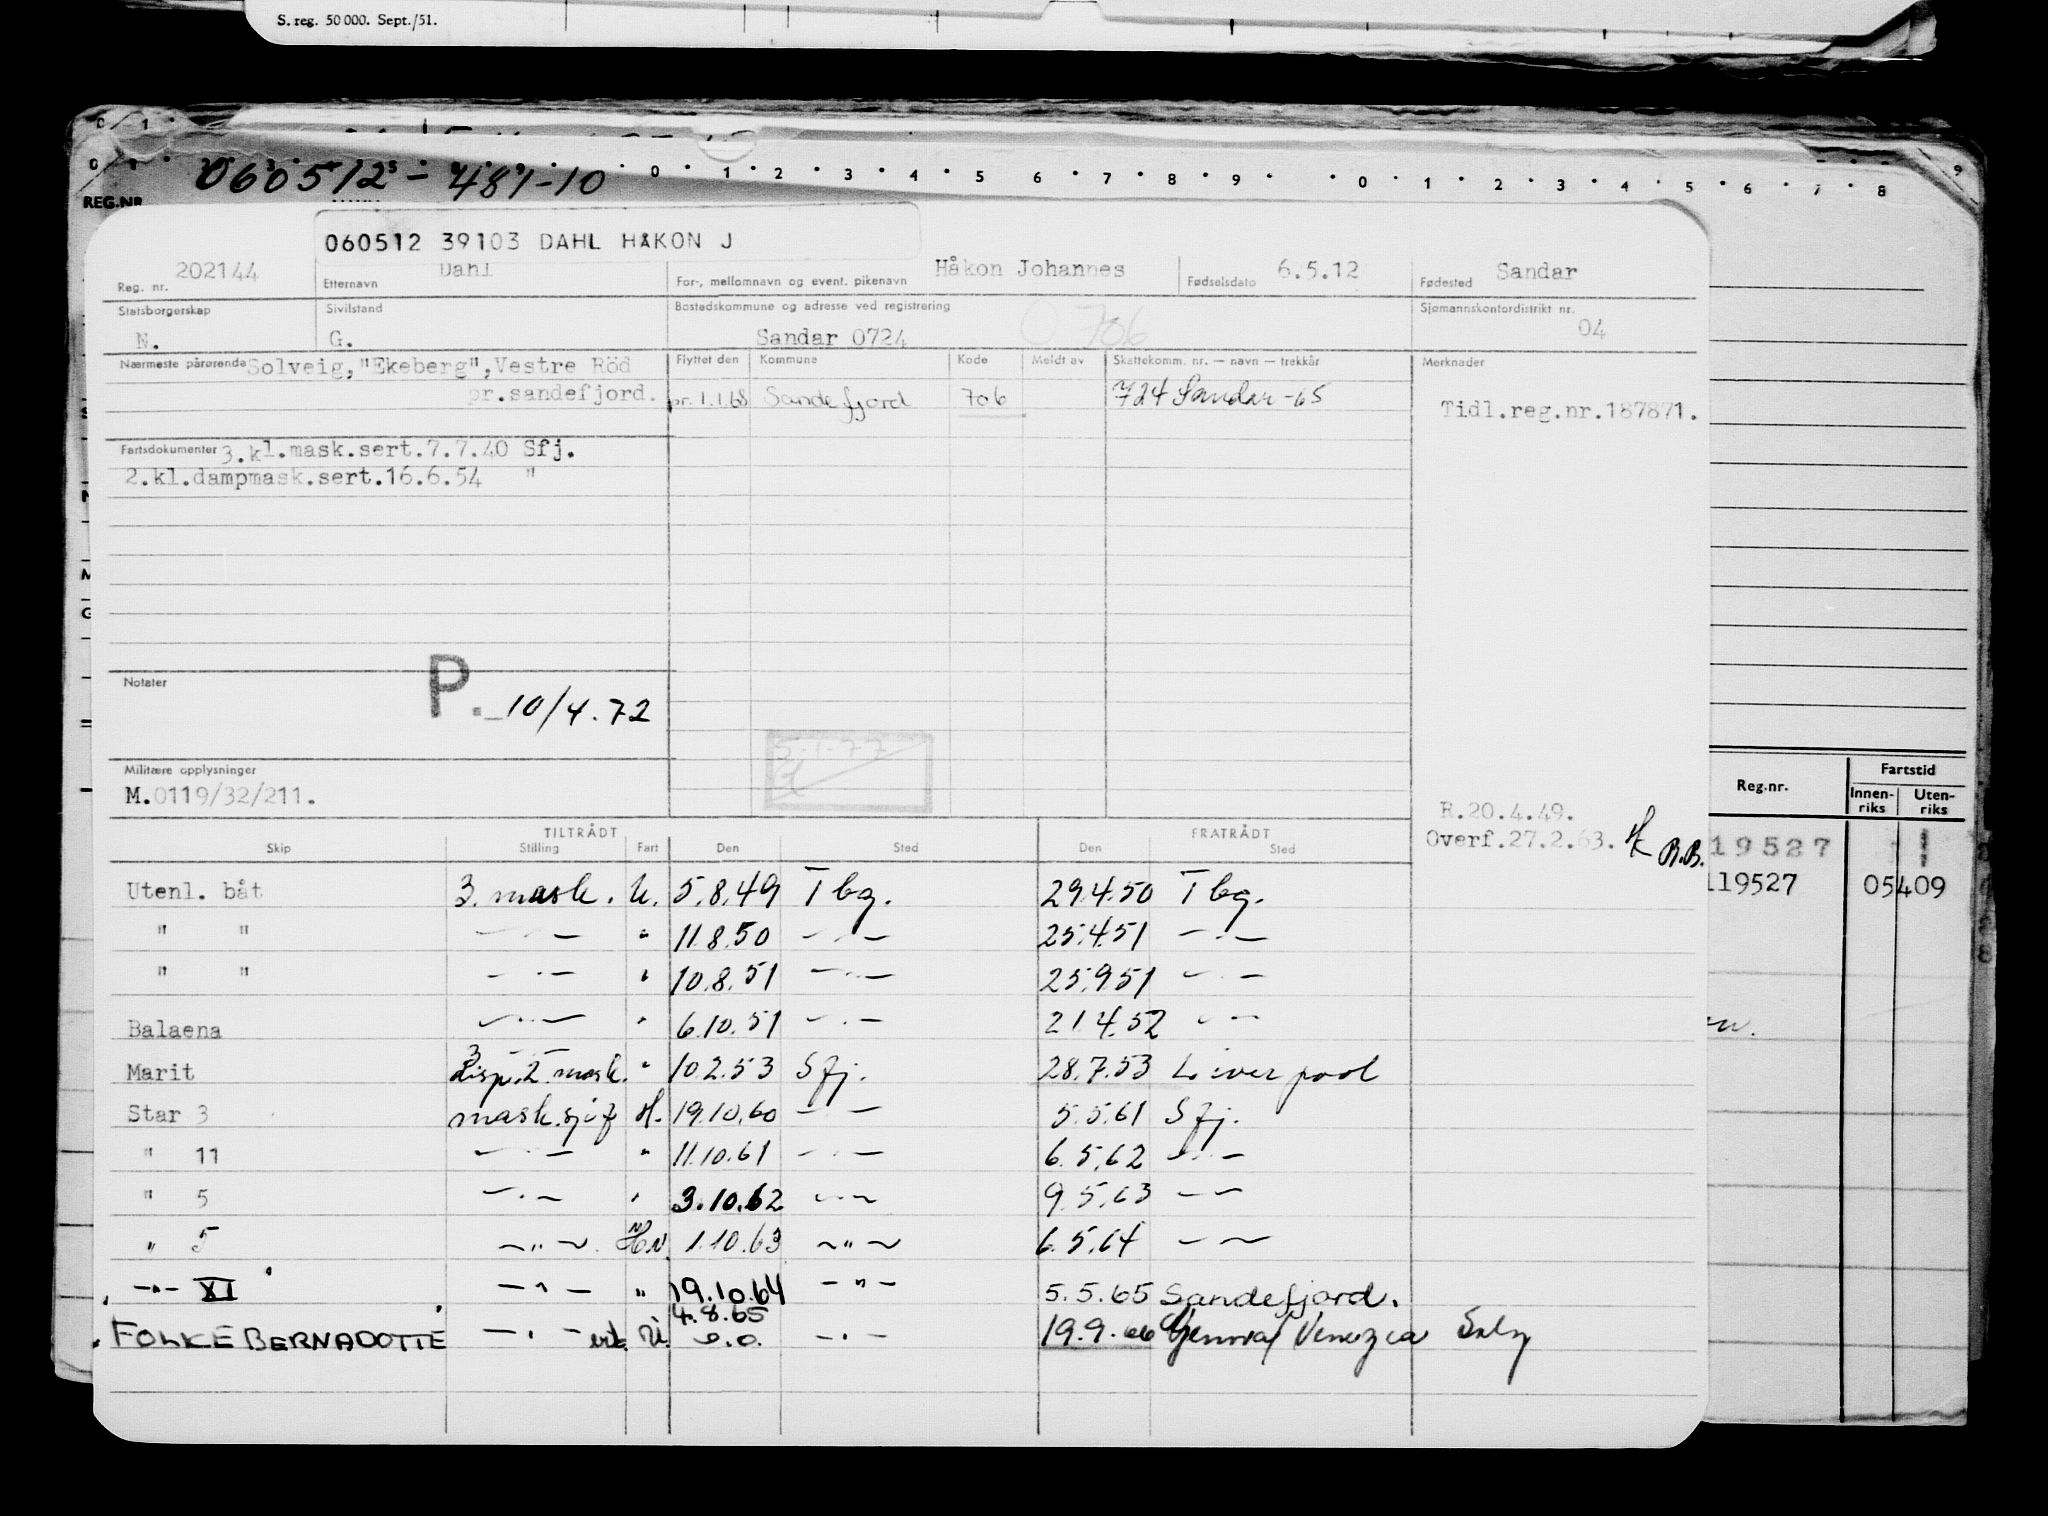 S. reg. 50 000. Sept./51.
0 1
060512 - 481-10 0 1 2 3 4 5 6 7 8 9 0 1 2 3 4 5 6 7 8 9
REG.NR
060512 39103 DAHL HÅKON J
202144 Dahl Håkon Johannes 6.5.12 Sandar
Reg. nr. Etternavn For-, mellomnavn og event. pikenavn Fødselsdato Fødested
Statsborgerskap Sivilstand Bostedskommune og adresse ved registrering Sjømannskontordistrikt nr.
N. G. Sandar 0724 0706 04
Nærmeste pårørende Solveig,"Ekeberg",Vestre Röd Flyttet den Kommune Kode Meldt av Skattekomm. nr. — navn — trekkår Merknader
pr.sandefjord. pr. 1.1.68 Sandefjord 706 724 Sandar -65
Tidl.reg.nr.187871.
Fartsdokumenter 3.kl.mask.sert.7.7.40 Sfj.
2.kl.dampmask.sert.16.6.54 "
Notater
P. 10/4.72
5-1-77
Militære opplysninger
M.0119/32/211.
Reg.nr. Fartstid
Innen-riks Uten-riks
R.20.4.49.
Overf.27.2.63. B.B.
19527
119527 05409
TILTRÅDT FRATRÅDT
Skip Stilling Fart Den Sted Den Sted
Utenl. båt 3. mask. U. 5.8.49 Tbg. 29.4.50 Tbg.
" " — " — " 11.8.50 — " — 25.4.51 — " —
" " — " — " 10.8.51 — " — 25.9.51 — " —
Balaena — " — " 6.10.51 — " — 21.4.52 — " —
Marit 3 Disp. 2. mask. " 10.2.53 Sfj. 28.7.53 Liverpool
Star 3 mask.sjef H. 19.10.60 — " — 5.5.61 Sfj.
" 11 — " — " 11.10.61 — " — 6.5.62 — " —
" 5 — " — " 3.10.62 — " — 9.5.63 — " —
" 5 — " — HN 1.10.63 — " — 6.5.64 — " —
— " — XI — " — " 19.10.64 — " — 5.5.65 Sandefjord.
FOLKE BERNADOTTE — " — U. 4.8.65 — " — 19.9.66 Genova/Venezia